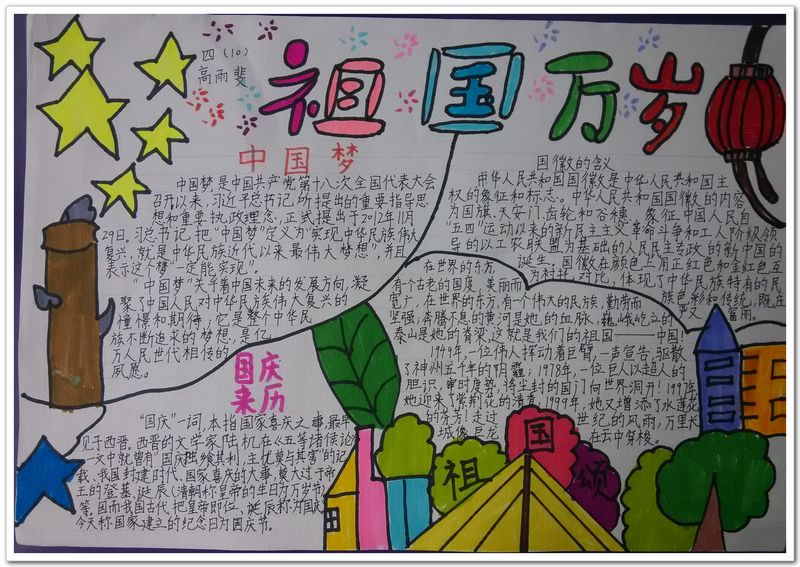 四(10)
高雨斐
祖国万岁
中国梦
中国梦是中国共产党第十八次全国代表大会
召开以来,习近平总书记所提出的重要指导思
想和重要执政理念,正式提出于2012年11月
29日。习总书记把“中国梦”定义为“实现中华民族伟大
复兴,就是中华民族近代以来最伟大梦想”,并且
表示这个梦“一定能实现”。
“中国梦”关乎着中国未来的发展方向,凝
聚了中国人民对中华民族伟大复兴的
憧憬和期待,它是整个中华民
族不断追求的梦想,是亿
万人民世代相传的
夙愿。
国徽的含义
中华人民共和国国徽是中华人民共和国主
权的象征和标志。中华人民共和国国徽的内容
为国旗、天安门、齿轮和谷穗,象征中国人民自
“五四”运动以来的新民主主义革命斗争和工人阶级领
导的以工农联盟为基础的人民民主专政的新中国的
诞生。国徽在颜色上用正红色和金红色互
为衬托、对比,体现了中华民族特有的民
族色彩和传统,既庄
严又富丽。
在世界的东方,
有个古老的国度,美丽而
宽广,在世界的东方,有个伟大的民族,勤劳而
坚强,奔腾不息的黄河是她的血脉,巍峨屹立的
泰山是她的脊梁,这就是我们的祖国——中国!
1949年,一位伟人挥动着巨臂,一声宣告,驱散
了神州五千年的阴霾。1978年,一位巨人以超人的
胆识,审时度势,将尘封的国门向世界洞开!1997年
她迎来了紫荆花的清香,1999年,她又增添了水莲花
的芬芳,走过世纪的风雨,万里长
城像巨龙在云中穿梭。
国庆
来历
“国庆”一词,本指国家喜庆之事,最早
见于西晋。西晋的文学家陆机在《五等诸侯论》
一文中就曾有“国庆独飨其利,主忧莫与其害”的记
载、我国封建时代、国家喜庆的大事,莫大过于帝
王的登基、诞辰(清朝称皇帝的生日为万岁节)
等。因而我国古代把皇帝即位、诞辰称为国庆
今天称国家建立的纪念日为国庆节。
祖国颂